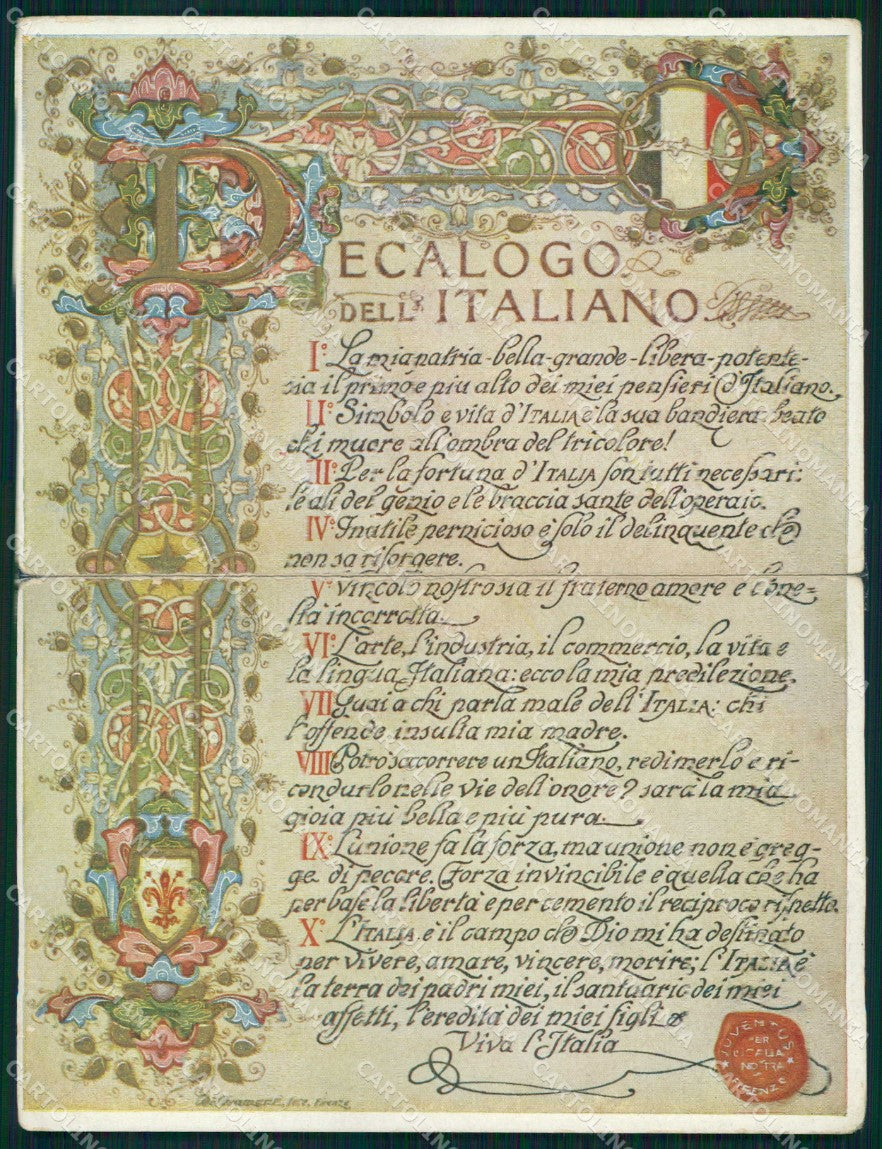 DECALOGO
DELL' ITALIANO
I° La mia patria - bella - grande - libera - potente -
sia il primo e piu alto dei miei pensieri d'Italiano.
II° Simbolo e vita d'ITALIA è la sua bandiera: beato
chi muore all'ombra del tricolore!
II° Per la fortuna d'ITALIA son tutti necessari:
le ali del genio e le braccia sante dell'operaio.
IV° Inutile pernicioso è solo il delinquente che
non sa risorgere.
V° vincolo nostro sia il fraterno amore e l'one-
stà incorrotta.
VI° L'arte, l'industria, il commercio, la vita e
la lingua Italiana: ecco la mia predilezione.
VII Guai a chi parla male dell'ITALIA: chi
l'offende insulta mia madre.
VIII Potrò soccorrere un Italiano, redimerlo e ri-
condurlo nelle vie dell'onore? sarà la mia
gioia più bella e più pura.
IX° L'unione fa la forza, ma unione non è greg-
ge di pecore. Forza invincibile è quella che ha
per base la libertà e per cemento il reciproco rispetto.
X° L'ITALIA è il campo che Dio mi ha destinato
per vivere, amare, vincere, morire; l'ITALIA è
la terra dei padri miei, il santuario dei miei
affetti, l'eredità dei miei figli
Viva l'Italia
JUVENTUS
PER
ITALIA
NOSTRA
FIRENZE
Firenze
CARTOLINOMANIA